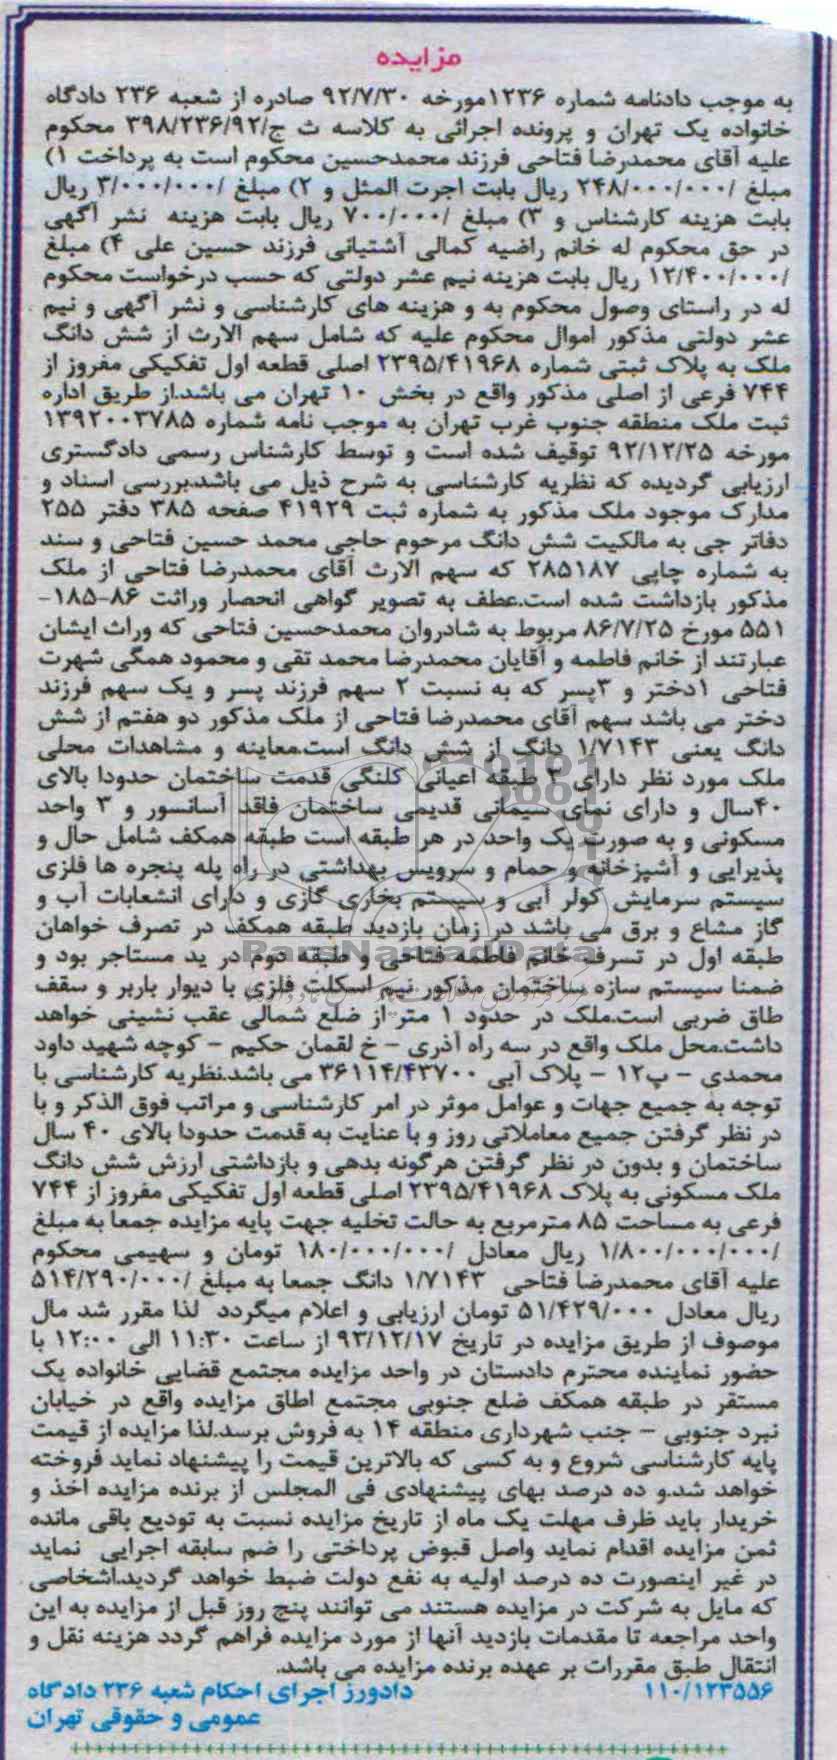 مزایده
به موجب دادنامه شماره ۱۲۳۶مورخه ۹۲/۷/۳۰ صادره از شعبه ۲۳۶ دادگاه
خانواده یک تهران و پرونده اجرائی به کلاسه ث ج/۳۹۸/۲۳۶/۹۲ محکوم
علیه آقای محمدرضا فتاحی فرزند محمدحسین محکوم است به پرداخت ۱)
مبلغ /۲۴۸/۰۰۰/۰۰۰ ریال بابت اجرت المثل و ۲) مبلغ /۳/۰۰۰/۰۰۰ ریال
بابت هزینه کارشناس و ۳) مبلغ /۷۰۰/۰۰۰ ریال بابت هزینه نشر آگهی
در حق محکوم له خانم راضیه کمالی آشتیانی فرزند حسین علی ۴) مبلغ
/۱۲/۴۰۰/۰۰۰ ریال بابت هزینه نیم عشر دولتی که حسب درخواست محکوم
له در راستای وصول محکوم به و هزینه های کارشناسی و نشر آگهی و نیم
عشر دولتی مذکور اموال محکوم علیه که شامل سهم الارث از شش دانگ
ملک به پلاک ثبتی شماره ۲۳۹۵/۴۱۹۶۸ اصلی قطعه اول تفکیکی مفروز از
۷۴۴ فرعی از اصلی مذکور واقع در بخش ۱۰ تهران می باشد.از طریق اداره
ثبت ملک منطقه جنوب غرب تهران به موجب نامه شماره ۱۳۹۲۰۰۳۷۸۵
مورخه ۹۲/۱۲/۲۵ توقیف شده است و توسط کارشناس رسمی دادگستری
ارزیابی گردیده که نظریه کارشناسی به شرح ذیل می باشد.بررسی اسناد و
مدارک موجود ملک مذکور به شماره ثبت ۴۱۹۲۹ صفحه ۳۸۵ دفتر ۲۵۵
دفاتر جی به مالکیت شش دانگ مرحوم حاجی محمد حسین فتاحی و سند
به شماره چاپی ۲۸۵۱۸۷ که سهم الارث آقای محمدرضا فتاحی از ملک
مذکور بازداشت شده است.عطف به تصویر گواهی انحصار وراثت ۸۶-۱۸۵-
۵۵۱ مورخ ۸۶/۷/۲۵ مربوط به شادروان محمدحسین فتاحی که وراث ایشان
عبارتند از خانم فاطمه و آقایان محمدرضا محمد تقی و محمود همگی شهرت
فتاحی ۱دختر و ۳پسر که به نسبت ۲ سهم فرزند پسر و یک سهم فرزند
دختر می باشد سهم آقای محمدرضا فتاحی از ملک مذکور دو هفتم از شش
دانگ یعنی ۱/۷۱۴۳ دانگ از شش دانگ است.معاینه و مشاهدات محلی
ملک مورد نظر دارای ۳ طبقه اعیانی کلنگی قدمت ساختمان حدودا بالای
۴۰سال و دارای نمای سیمانی قدیمی ساختمان فاقد آسانسور و ۳ واحد
مسکونی و به صورت یک واحد در هر طبقه است طبقه همکف شامل حال و
پذیرایی و آشپزخانه و حمام و سرویس بهداشتی در راه پله پنجره ها فلزی
سیستم سرمایش کولر آبی و سیستم بخاری گازی و دارای انشعابات آب و
گاز مشاع و برق می باشد در زمان بازدید طبقه همکف در تصرف خواهان
طبقه اول در تسرف خانم فاطمه فتاحی و طبقه دوم در ید مستاجر بود و
ParsNamadData
ضمنا سیستم سازه ساختمان مذکور نیم اسکلت فلزی با دیوار باربر و سقف
طاق ضربی است.ملک در حدود ۱ متر از ضلع شمالی عقب نشینی خواهد
داشت.محل ملک واقع در سه راه آذری - خ لقمان حکیم - کوچه شهید داود
محمدی - پ۱۲ - پلاک آبی ۳۶۱۱۴/۴۳۷۰۰ می باشد.نظریه کارشناسی با
توجه به جمیع جهات و عوامل موثر در امر کارشناسی و مراتب فوق الذکر و با
در نظر گرفتن جمیع معاملاتی روز و با عنایت به قدمت حدودا بالای ۴۰ سال
ساختمان و بدون در نظر گرفتن هرگونه بدهی و بازداشتی ارزش شش دانگ
ملک مسکونی به پلاک ۲۳۹۵/۴۱۹۶۸ اصلی قطعه اول تفکیکی مفروز از ۷۴۴
فرعی به مساحت ۸۵ مترمربع به حالت تخلیه جهت پایه مزایده جمعا به مبلغ
/۱/۸۰۰/۰۰۰/۰۰۰ ریال معادل /۱۸۰/۰۰۰/۰۰۰ تومان و سهیمی محکوم
علیه آقای محمدرضا فتاحی ۱/۷۱۴۳ دانگ جمعا به مبلغ /۵۱۴/۲۹۰/۰۰۰
ریال معادل ۵۱/۴۲۹/۰۰۰ تومان ارزیابی و اعلام میگردد لذا مقرر شد مال
موصوف از طریق مزایده در تاریخ ۹۳/۱۲/۱۷ از ساعت ۱۱:۳۰ الی ۱۲:۰۰ با
حضور نماینده محترم دادستان در واحد مزایده مجتمع قضایی خانواده یک
مستقر در طبقه همکف ضلع جنوبی مجتمع اطاق مزایده واقع در خیابان
نبرد جنوبی - جنب شهرداری منطقه ۱۴ به فروش برسد.لذا مزایده از قیمت
پایه کارشناسی شروع و به کسی که بالاترین قیمت را پیشنهاد نماید فروخته
خواهد شد.و ده درصد بهای پیشنهادی فی المجلس از برنده مزایده اخذ و
خریدار باید ظرف مهلت یک ماه از تاریخ مزایده نسبت به تودیع باقی مانده
ثمن مزایده اقدام نماید واصل قبوض پرداختی را ضم سابقه اجرایی نماید
در غیر اینصورت ده درصد اولیه به نفع دولت ضبط خواهد گردید.اشخاصی
که مایل به شرکت در مزایده هستند می توانند پنج روز قبل از مزایده به این
واحد مراجعه تا مقدمات بازدید آنها از مورد مزایده فراهم گردد هزینه نقل و
انتقال طبق مقررات بر عهده برنده مزایده می باشد.
۱۱۰/۱۲۳۵۵۶ دادورز اجرای احکام شعبه ۲۳۶ دادگاه
عمومی و حقوقی تهران